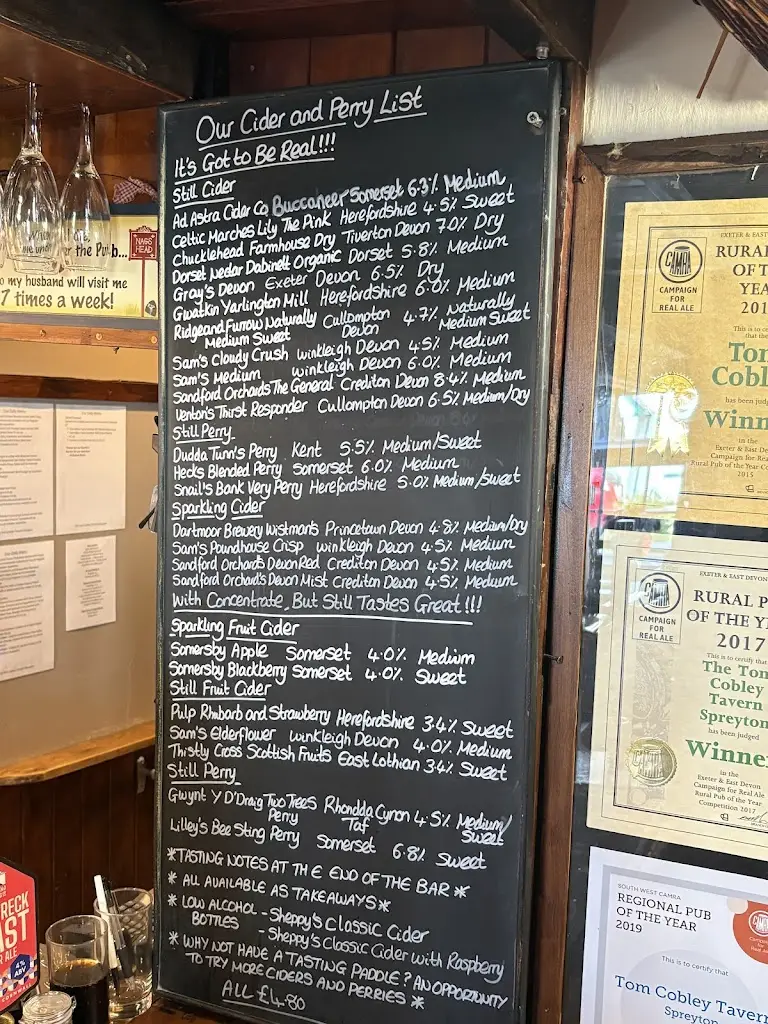 Our Cider and Perry List
It's Got to Be Real!!!
Still Cider
Ad Astra Cider Co, Buccaneer Somerset 6.3% Medium
Celtic Marches Lily The Pink Herefordshire 4.5% Sweet
Chucklehead Farmhouse Dry Tiverton Devon 7.0% Dry
Dorset Nectar Dabinett Organic Dorset 5.8% Medium
Gray's Devon Exeter Devon 6.5% Dry
Gwatkin Yarlington Mill Herefordshire 6.0% Medium
Ridge and Furrow Naturally Cullompton 4.7% Naturally
Medium Sweet Devon Medium Sweet
Sam's Cloudy Crush Winkleigh Devon 4.5% Medium
Sam's Medium Winkleigh Devon 6.0% Medium
Sandford Orchards The General Crediton Devon 8.4% Medium
Venton's Thirst Responder Cullompton Devon 6.5% Medium/Dry
Still Perry
Dudda Tunn's Perry Kent 5.5% Medium/Sweet
Hecks Blended Perry Somerset 6.0% Medium
Snail's Bank Very Perry Herefordshire 5.0% Medium/Sweet
Sparkling Cider
Dartmoor Brewery Wistman's Princetown Devon 4.8% Medium/Dry
Sam's Poundhouse Crisp Winkleigh Devon 4.5% Medium
Sandford Orchards Devon Red Crediton Devon 4.5% Medium
Sandford Orchards Devon Mist Crediton Devon 4.5% Medium
With Concentrate, But Still Tastes Great!!!
Sparkling Fruit Cider
Somersby Apple Somerset 4.0% Medium
Somersby Blackberry Somerset 4.0% Sweet
Still Fruit Cider
Pulp Rhubarb and Strawberry Herefordshire 3.4% Sweet
Sam's Elderflower Winkleigh Devon 4.0% Medium
Thistly Cross Scottish Fruits East Lothian 3.4% Sweet
Still Perry
Gwynt Y D'Draig Two Trees Rhondda Cynon 4.5% Medium/
Perry Taf Sweet
Lilley's Bee Sting Perry Somerset 6.8% Sweet
*TASTING NOTES AT THE END OF THE BAR*
* ALL AVAILABLE AS TAKEAWAYS*
* LOW ALCOHOL - Sheppy's Classic Cider
BOTTLES - Sheppy's Classic Cider with Raspberry
* WHY NOT HAVE A TASTING PADDLE? AN OPPORTUNITY
TO TRY MORE CIDERS AND PERRIES *
ALL £4.80
NAGS
HEAD
r the Pub...
o my husband will visit me
7 times a week!
RECK
AST
R ALE
4%
ABV
EXETER & EAST
CAMRA
CAMPAIGN
FOR
REAL ALE
RURAL
OF T
YEA
201
This is to ce
that the
Tom
Cobl
has been judg
Winn
in the
Exeter & East De
Campaign for Rea
Rural Pub of the Year Co
2015
EXETER & EAST DEVON
CAMRA
CAMPAIGN
FOR
REAL ALE
RURAL P
OF THE YE
2017
This is to certify that
The Tom
Cobley
Tavern
Spreyton
has been judged
Winner
in the
Exeter & East Devon
Campaign for Real Ale
Rural Pub of the Year
Competition 2017
SOUTH WEST CAMRA
REGIONAL PUB
OF THE YEAR
2019
This is to certify that
Tom Cobley Tavern
Spreyton